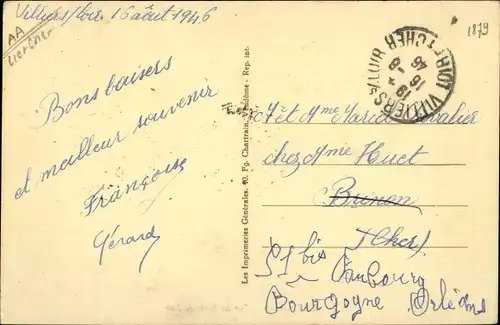 Villiers/Loir 16 août 1946
AA
Loir et Cher
1879
Bons baisers
et meilleur souvenir
Françoise
Gérard
Les Imprimeries Générales, 40, Fg. Chartrain, Vendôme - Rep. int.
VILLIERS
16-8
46
Mr et Mme Marcel
chez Mme Huet
Brinon
(Cher)
51 bis
Faubourg
Bourgogne Orléans